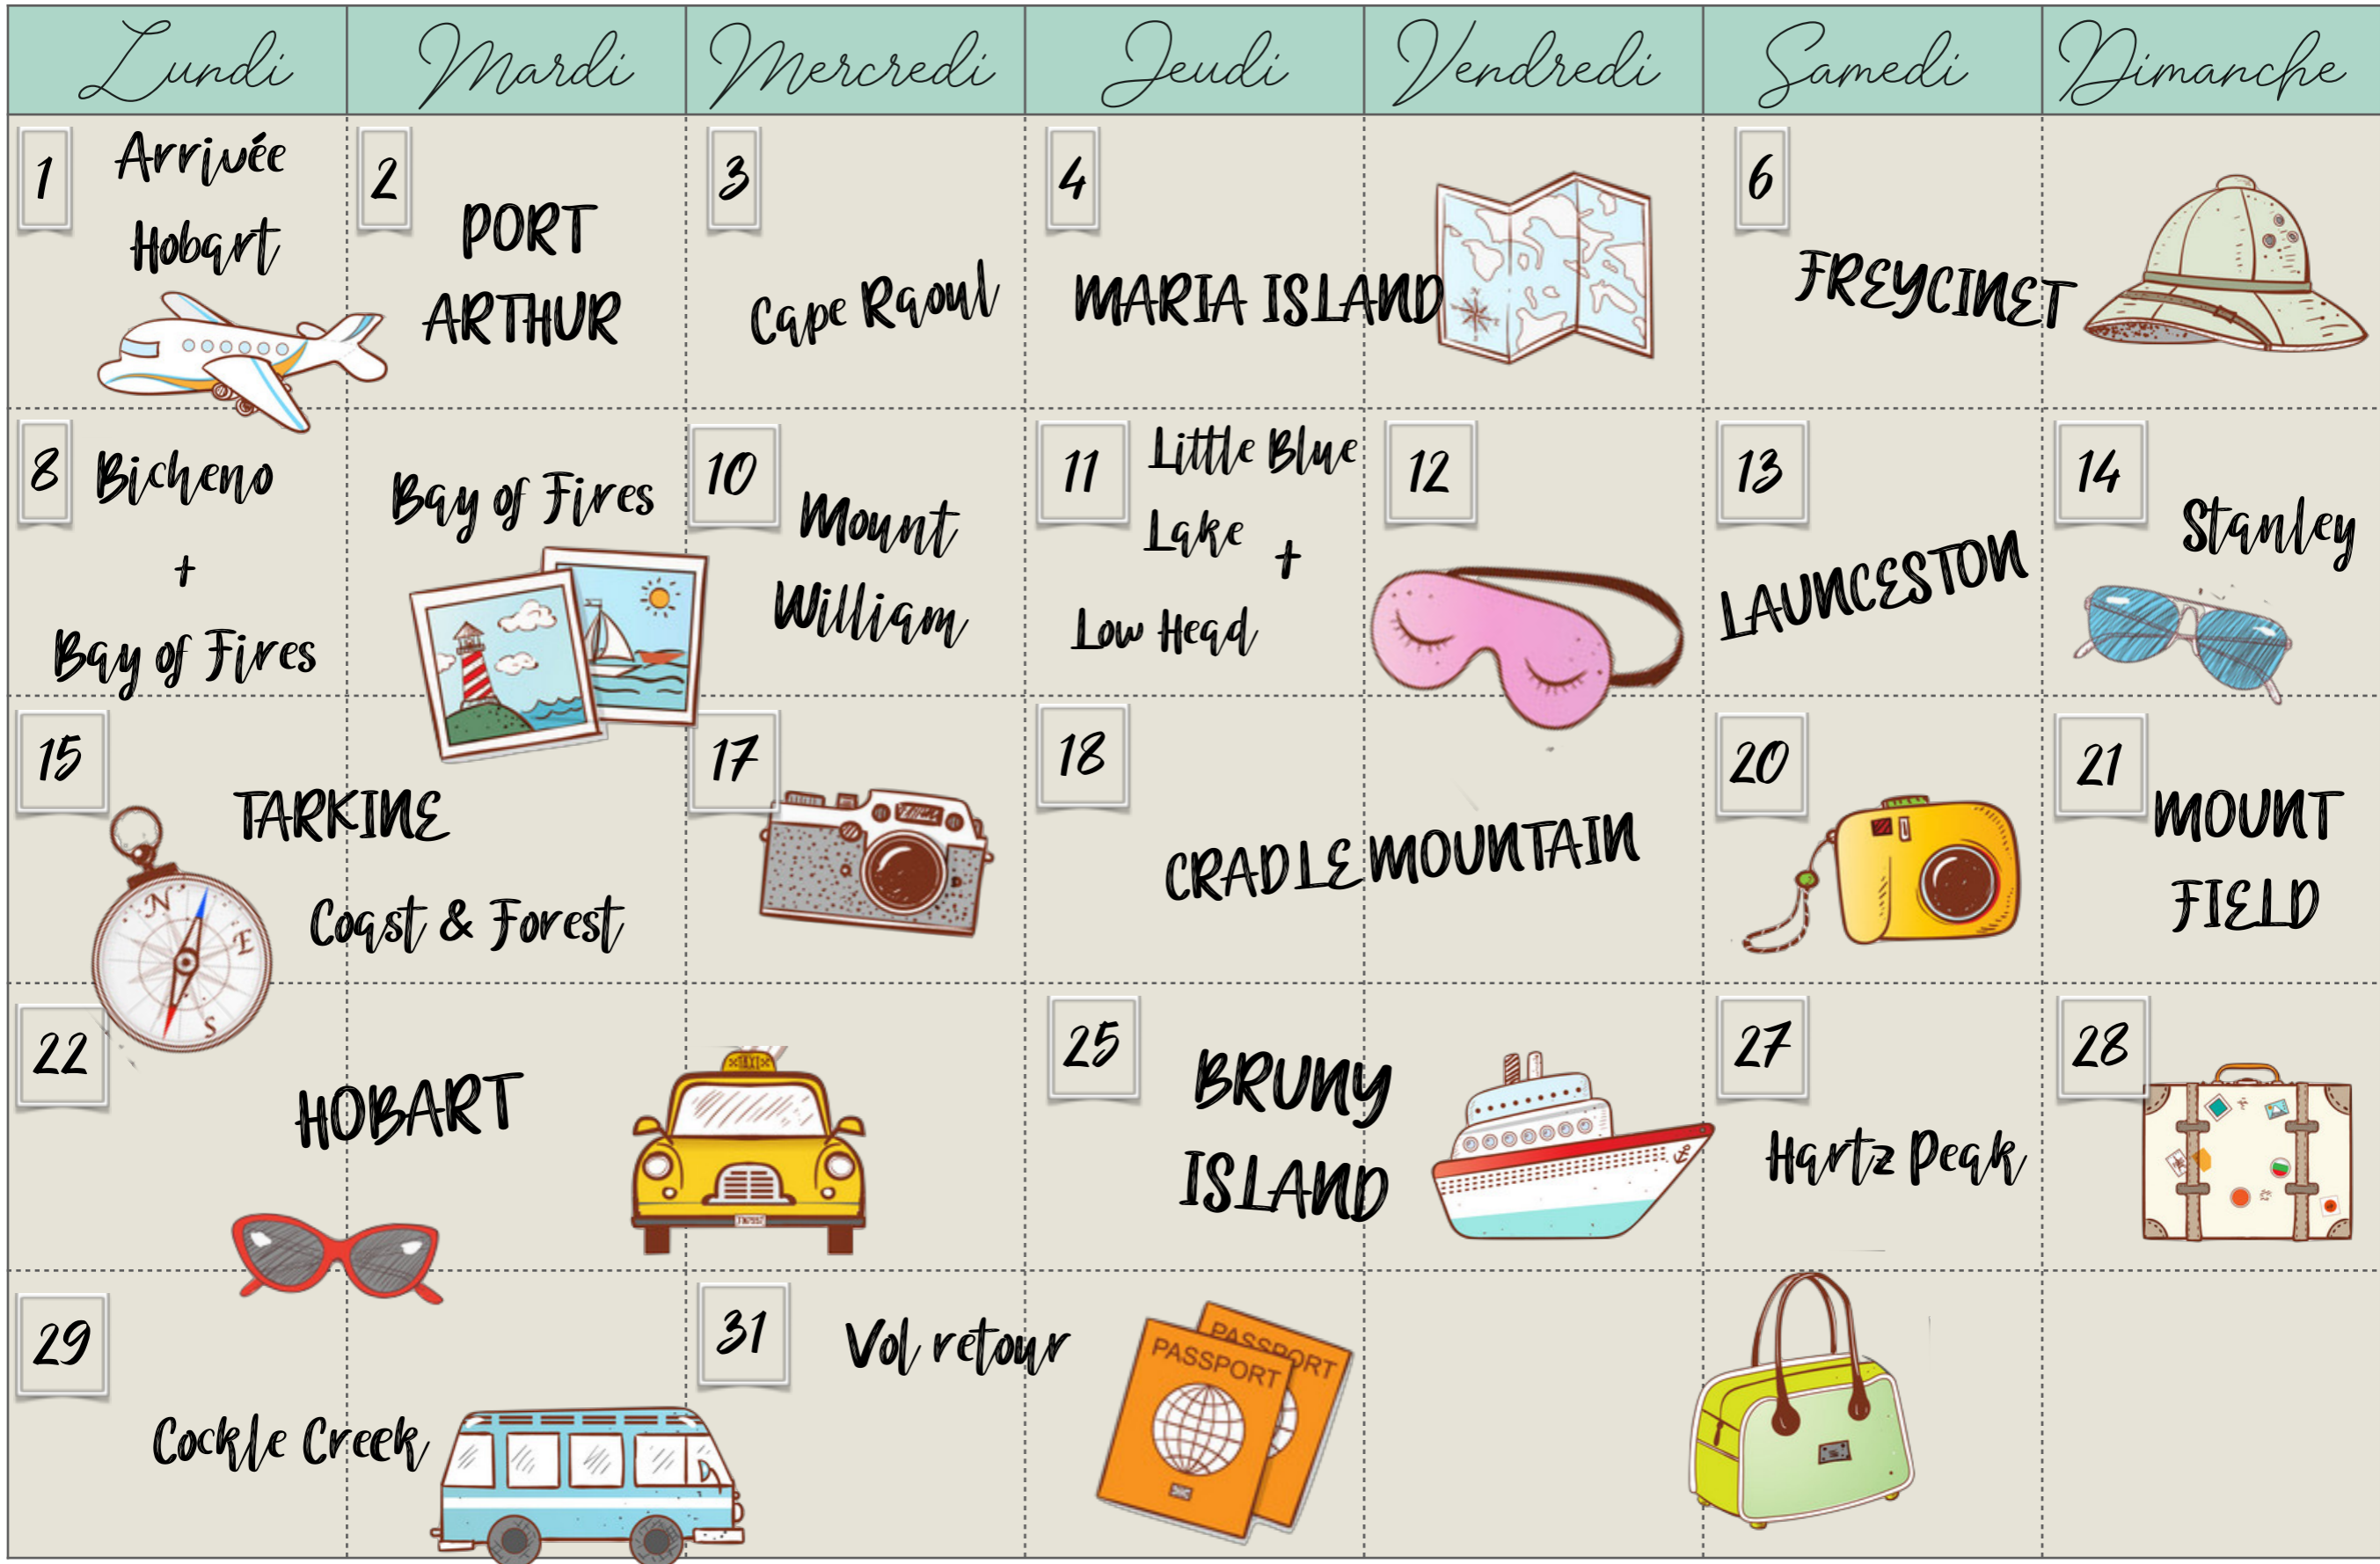 Lundi Mardi Mercredi Jeudi Vendredi Samedi Dimanche
1 Arrivée
Hobart
2 PORT
ARTHUR
3 Cape Raoul
4 MARIA ISLAND
6 FREYCINET
8 Bicheno
+
Bay of Fires
Bay of Fires
10 Mount
William
11 Little Blue
Lake +
Low Head
12
13 LAUNCESTON
14 Stanley
15 TARKINE
Coast & Forest
N E S
17
18 CRADLE MOUNTAIN
20
21 MOUNT
FIELD
22 HOBART
TAXI
25 BRUNY
ISLAND
27 Hartz Peak
28
29 Cockle Creek
31 Vol retour
PASSPORT
PASSPORT